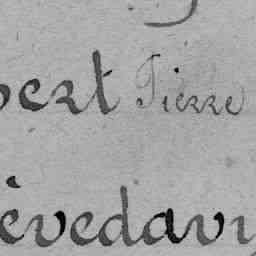 bert Pierre
evedavy